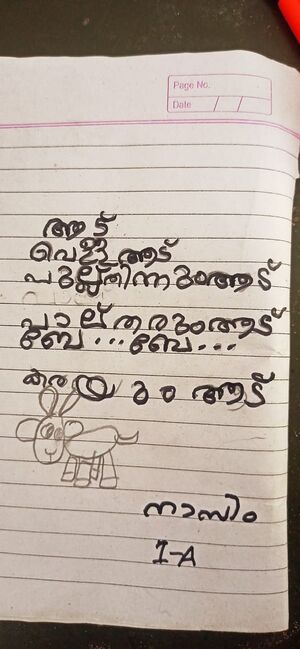 Page No.
Date / /
ആട്
വെള്ള ആട്
പുല്ല് തിന്നുംആട്
പാല് തരുംആട്
ബേ...ബേ...
കരയും ആട്
നാസിം
I-A